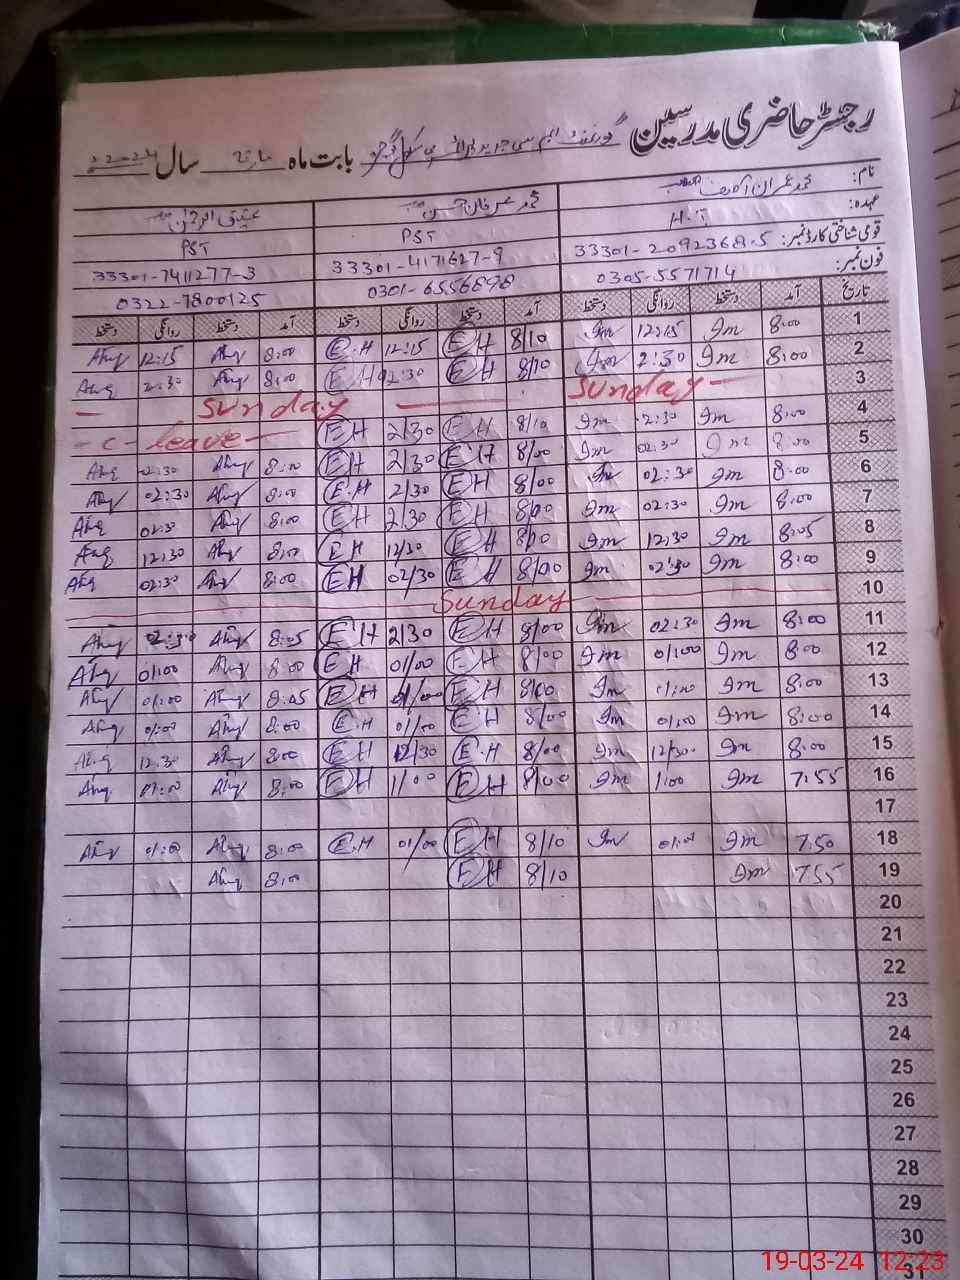 رجسٹر حاضری مدرسین گورنمنٹ ایم سی بابت ماہ مارچ سال 2024
نام: محمد عمران آصف محمد عرفان حسن عتیق الرحمٰن
عہدہ: H.T PST PST
قومی شناختی کارڈ نمبر: 33301-2092368-5 33301-4171627-9 33301-7411277-3
فون نمبر: 0305-5571714 0301-6556898 0322-7800125
تاریخ آمد دستخط روانگی دستخط آمد دستخط روانگی دستخط آمد دستخط روانگی دستخط
1 8:00 Im 12:15 Im 8/10 EH 12:15 E.H 8:00 Ahq 12:15 Ahq
2 8:00 Im 2:30 Im 8/10 EH 02:30 EH 8:00 Ahq 2:30 Ahq
3 Sunday Sunday
4 8:00 Im 2:30 Im 8/10 EH 2/30 EH c-leave
5 8:00 Im 02:30 Im 8/00 EH 2/30 EH 8:00 Ahq 02:30 Ahq
6 8:00 Im 02:30 Im 8/00 EH 2/30 E.H 8:00 Ahq 02:30 Ahq
7 8:00 Im 02:30 Im 8/00 EH 2/30 EH 8:00 Ahq 02:30 Ahq
8 8:05 Im 12:30 Im 8/00 EH 12/30 EH 8:00 Ahq 12:30 Ahq
9 8:00 Im 02:30 Im 8/00 EH 02/30 EH 8:00 Ahq 02:30 Ahq
10 Sunday
11 8:00 Im 02:30 Im 8/00 EH 2/30 EH 8:05 Ahq 02:30 Ahq
12 8:00 Im 01:00 Im 8/00 EH 01/00 EH 8:00 Ahq 01:00 Ahq
13 8:00 Im 01:00 Im 8/00 EH 01/00 EH 8:05 Ahq 01:00 Ahq
14 8:00 Im 01:00 Im 8/00 EH 01/00 E.H 8:00 Ahq 01:00 Ahq
15 8:00 Im 12/30 Im 8/00 E.H 12/30 EH 8:00 Ahq 12:30 Ahq
16 7:55 Im 1:00 Im 8/00 EH 1/00 EH 8:00 Ahq 01:00 Ahq
17
18 7:50 Im 01:00 Im 8/10 EH 01/00 E.H 8:00 Ahq 01:00 Ahq
19 7:55 Im 8/10 EH 8:00 Ahq
20
21
22
23
24
25
26
27
28
29
30
19-03-24 12:23